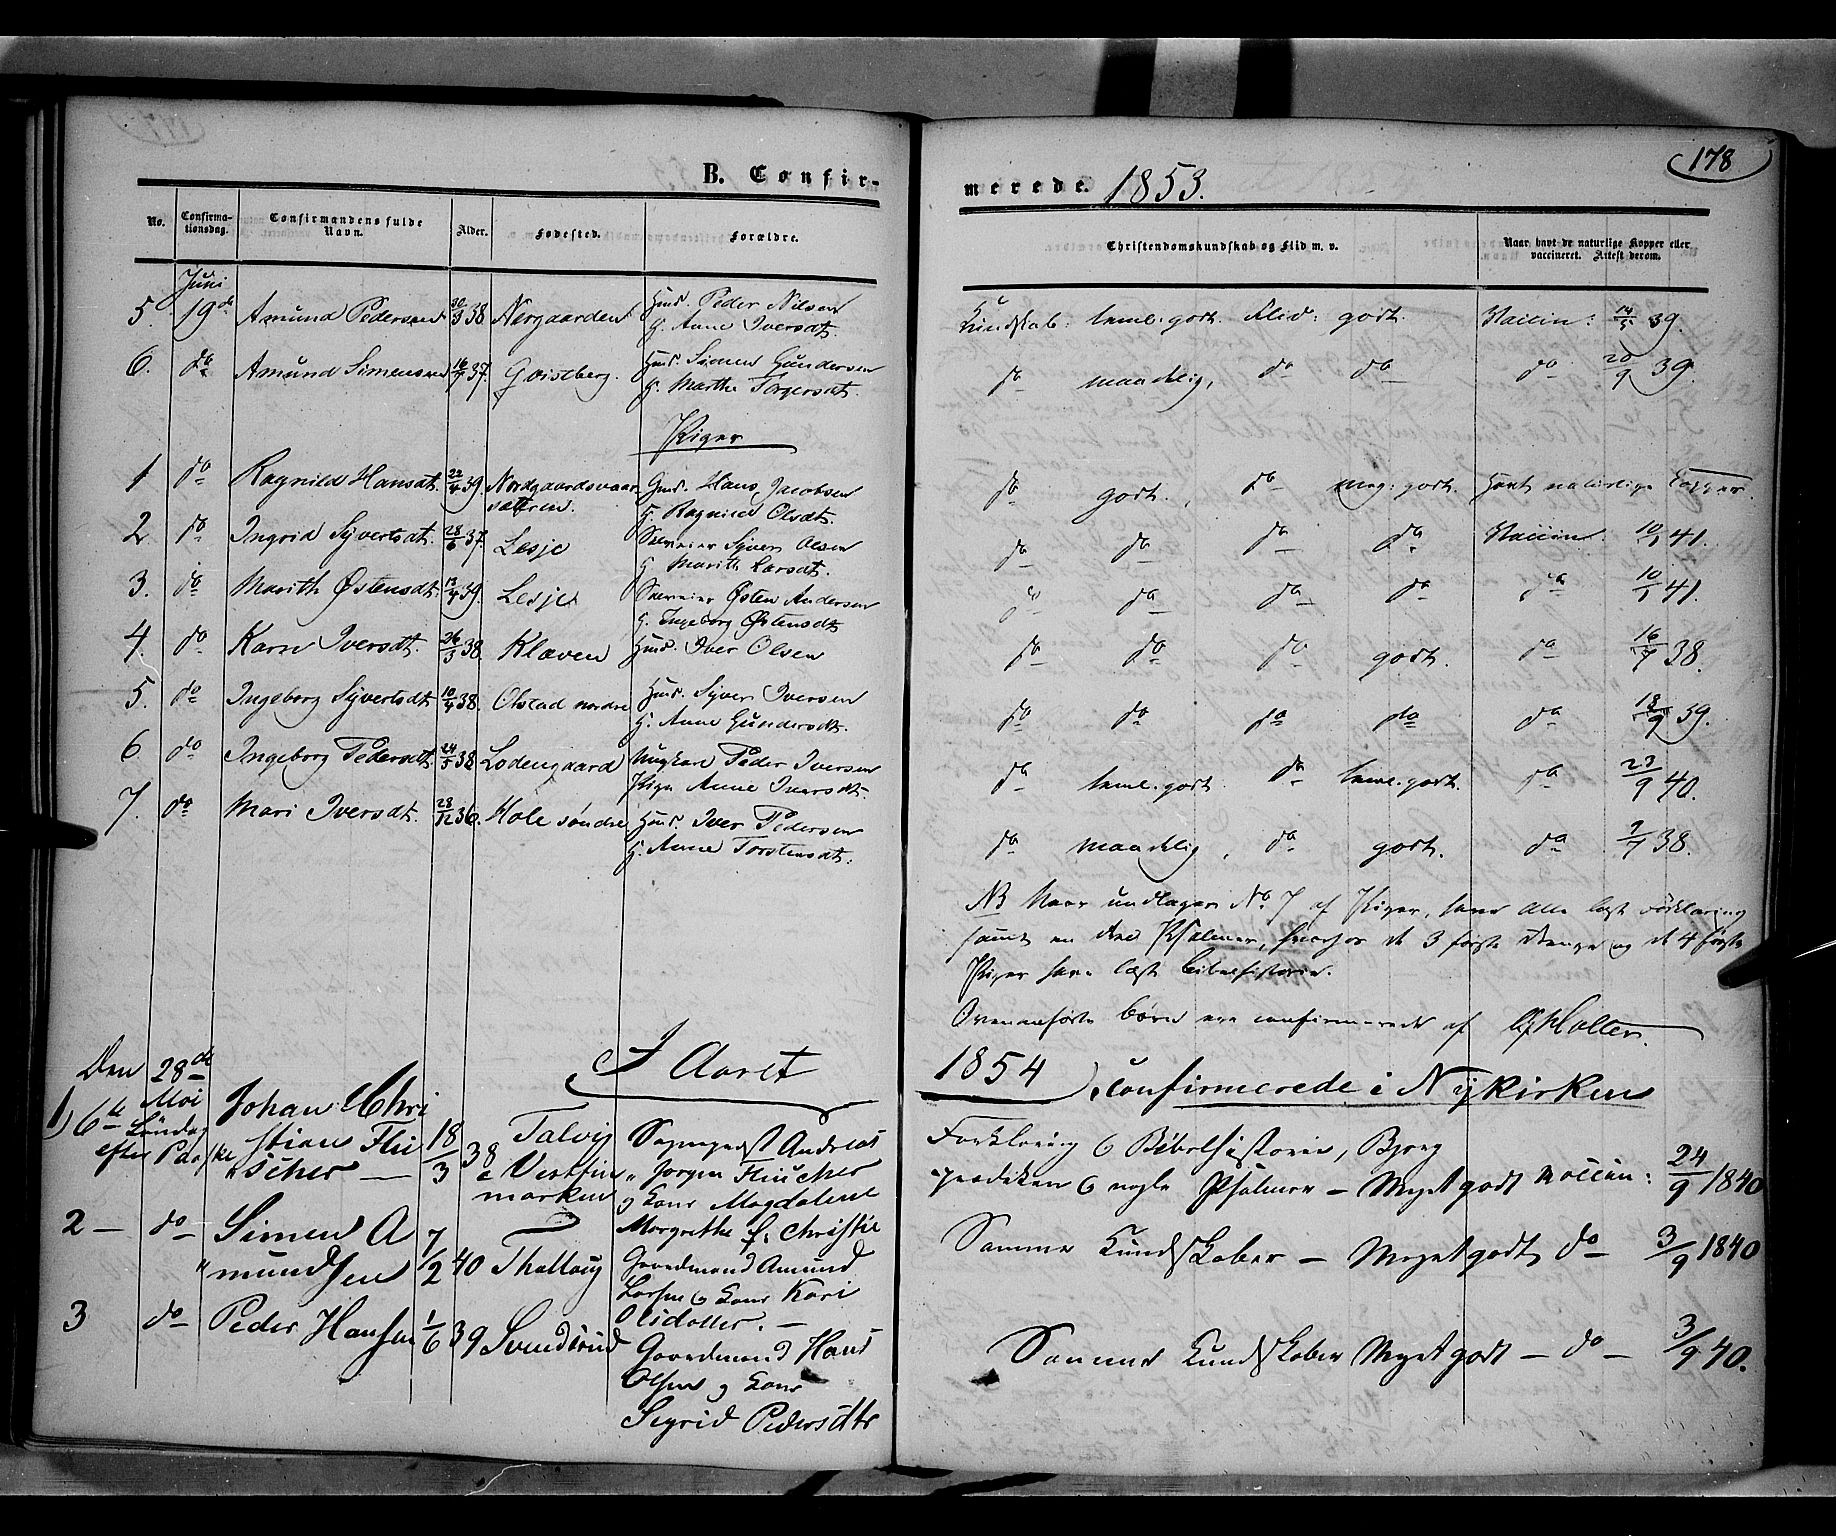 178
B. Confir-
merede. 1853.
No.
Confirma-
tionsdag.
Confirmandens fulde
Navn.
Alder.
Fødested.
Forældre.
Christendomskundskab og Flid m. v.
Naar havt de naturlige Kopper eller
vaccineret. Attest derom.
Juni
5. 19de Amund Pedersen 30/3 38 Nergaarden Hmd. Peder Nilsen
H. Anne Iversdt.
Kundskab: teml. godt. Flid: godt. Vaccin: 14/5 39.
6. do Amund Simensen 16/7 37. Goistberg. Hmd. Simen Gundersen
H. Marthe Torgersdt.
do maadelig, do do do 20/9 39.
Piger
1 do Ragnild Hansdt. 22/4 39. Nordgaardsvaar- Gmd. Hans Jacobsen
sætren. H. Ragnild Olsdt.
do godt. do meg. godt. havt naturlige Kopper.
2 do Ingrid Syvertsdt. 28/6 37. Lesje Syver Olsen
H. Marith Larsdt.
do do do do Vaccin. 10/1 41.
3. do Marith Østensdt. 13/4 39. Lesje Østen Andersen
H. Ingeborg Østensdt
do do do do do 10/1 41.
4. do Kari Iversdt. 26/3 38. Klæven Hmd. Iver Olsen
do do do godt. do 16/7 38.
5. do Ingeborg Syvertsdt 10/4 38. Olstad nordre Hmd. Syver Iversen
H. Anne Gundersdt.
do do do do do 18/9 39.
6 do Ingeborg Pedersdt. 24/5 38 Lodengaard Ungkarl Peder Iversen
Pige Anne Iversdt.
do teml. godt. do teml. godt. do 23/9 40.
7. do Mari Iversdt. 28/12 36. Hole søndre Hmd. Iver Pedersen
H. Anne Torstensdt.
do maadelig, do godt. do 7/7 38.
NB Naar undtages No 7 af Piger, have alle læst Forklaring
samt en deel Psalmer, hvorfor de 3 første Drenge og de 4 første
Piger have læst bibelhistorie.
Ovenanførte børn ere confirmerede af Holter.
I Aaret 1854 Confirmerede i Nykirken
Den 28de
Mai
6te Søndag
efter Paaske
1) Johan Chri
stian Flei
"scher 18/3 38 Talvig
i Vestfin
marken
Sogneprest Andreas
" Jørgen Fleischer
og Kone Magdalene
Margrethe f. Christie
Forklaring o Bibelhistorie, Bjerg
prædiken o nogle Psalmer – Meget godt Vaccin: 24/9 1840
2 – do Simen A
"mundsen 7/2 40 Thallaug Gaardmand Amund
Larsen o Kone Kari
Olsdatter. –
Samme Kundskaber – Meget godt do 3/9 1840
3 do Peder Hansen 1/6 39 Svendsrud Gaardmand Hans
Olsen og Kone
Sigrid Pedersdtr
Samme Kundskaber Meget godt – do – 3/9 40.